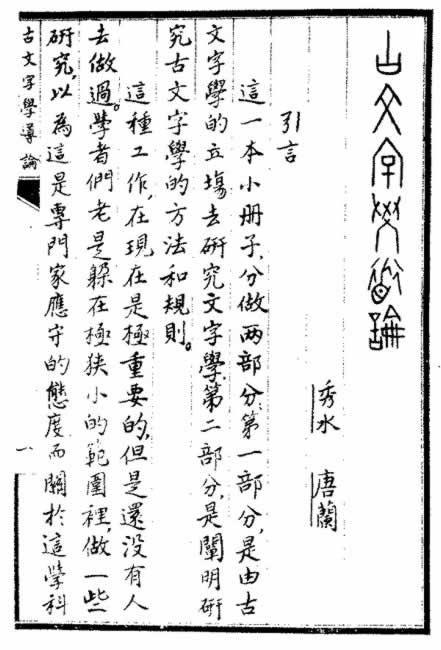 古文字學導論
秀水 唐蘭
引言
這一本小册子,分做两部分:第一部分,是由古
文字學的立塲去研究文字學,第二部分,是闡明研
究古文字學的方法和規則。
這種工作,在現在是極重要的,但是還没有人
去做過。學者們老是躱在極狹小的範圍裡,做一些
研究,以為這是專門家應守的態度而關於這學科
古文字學導論
一